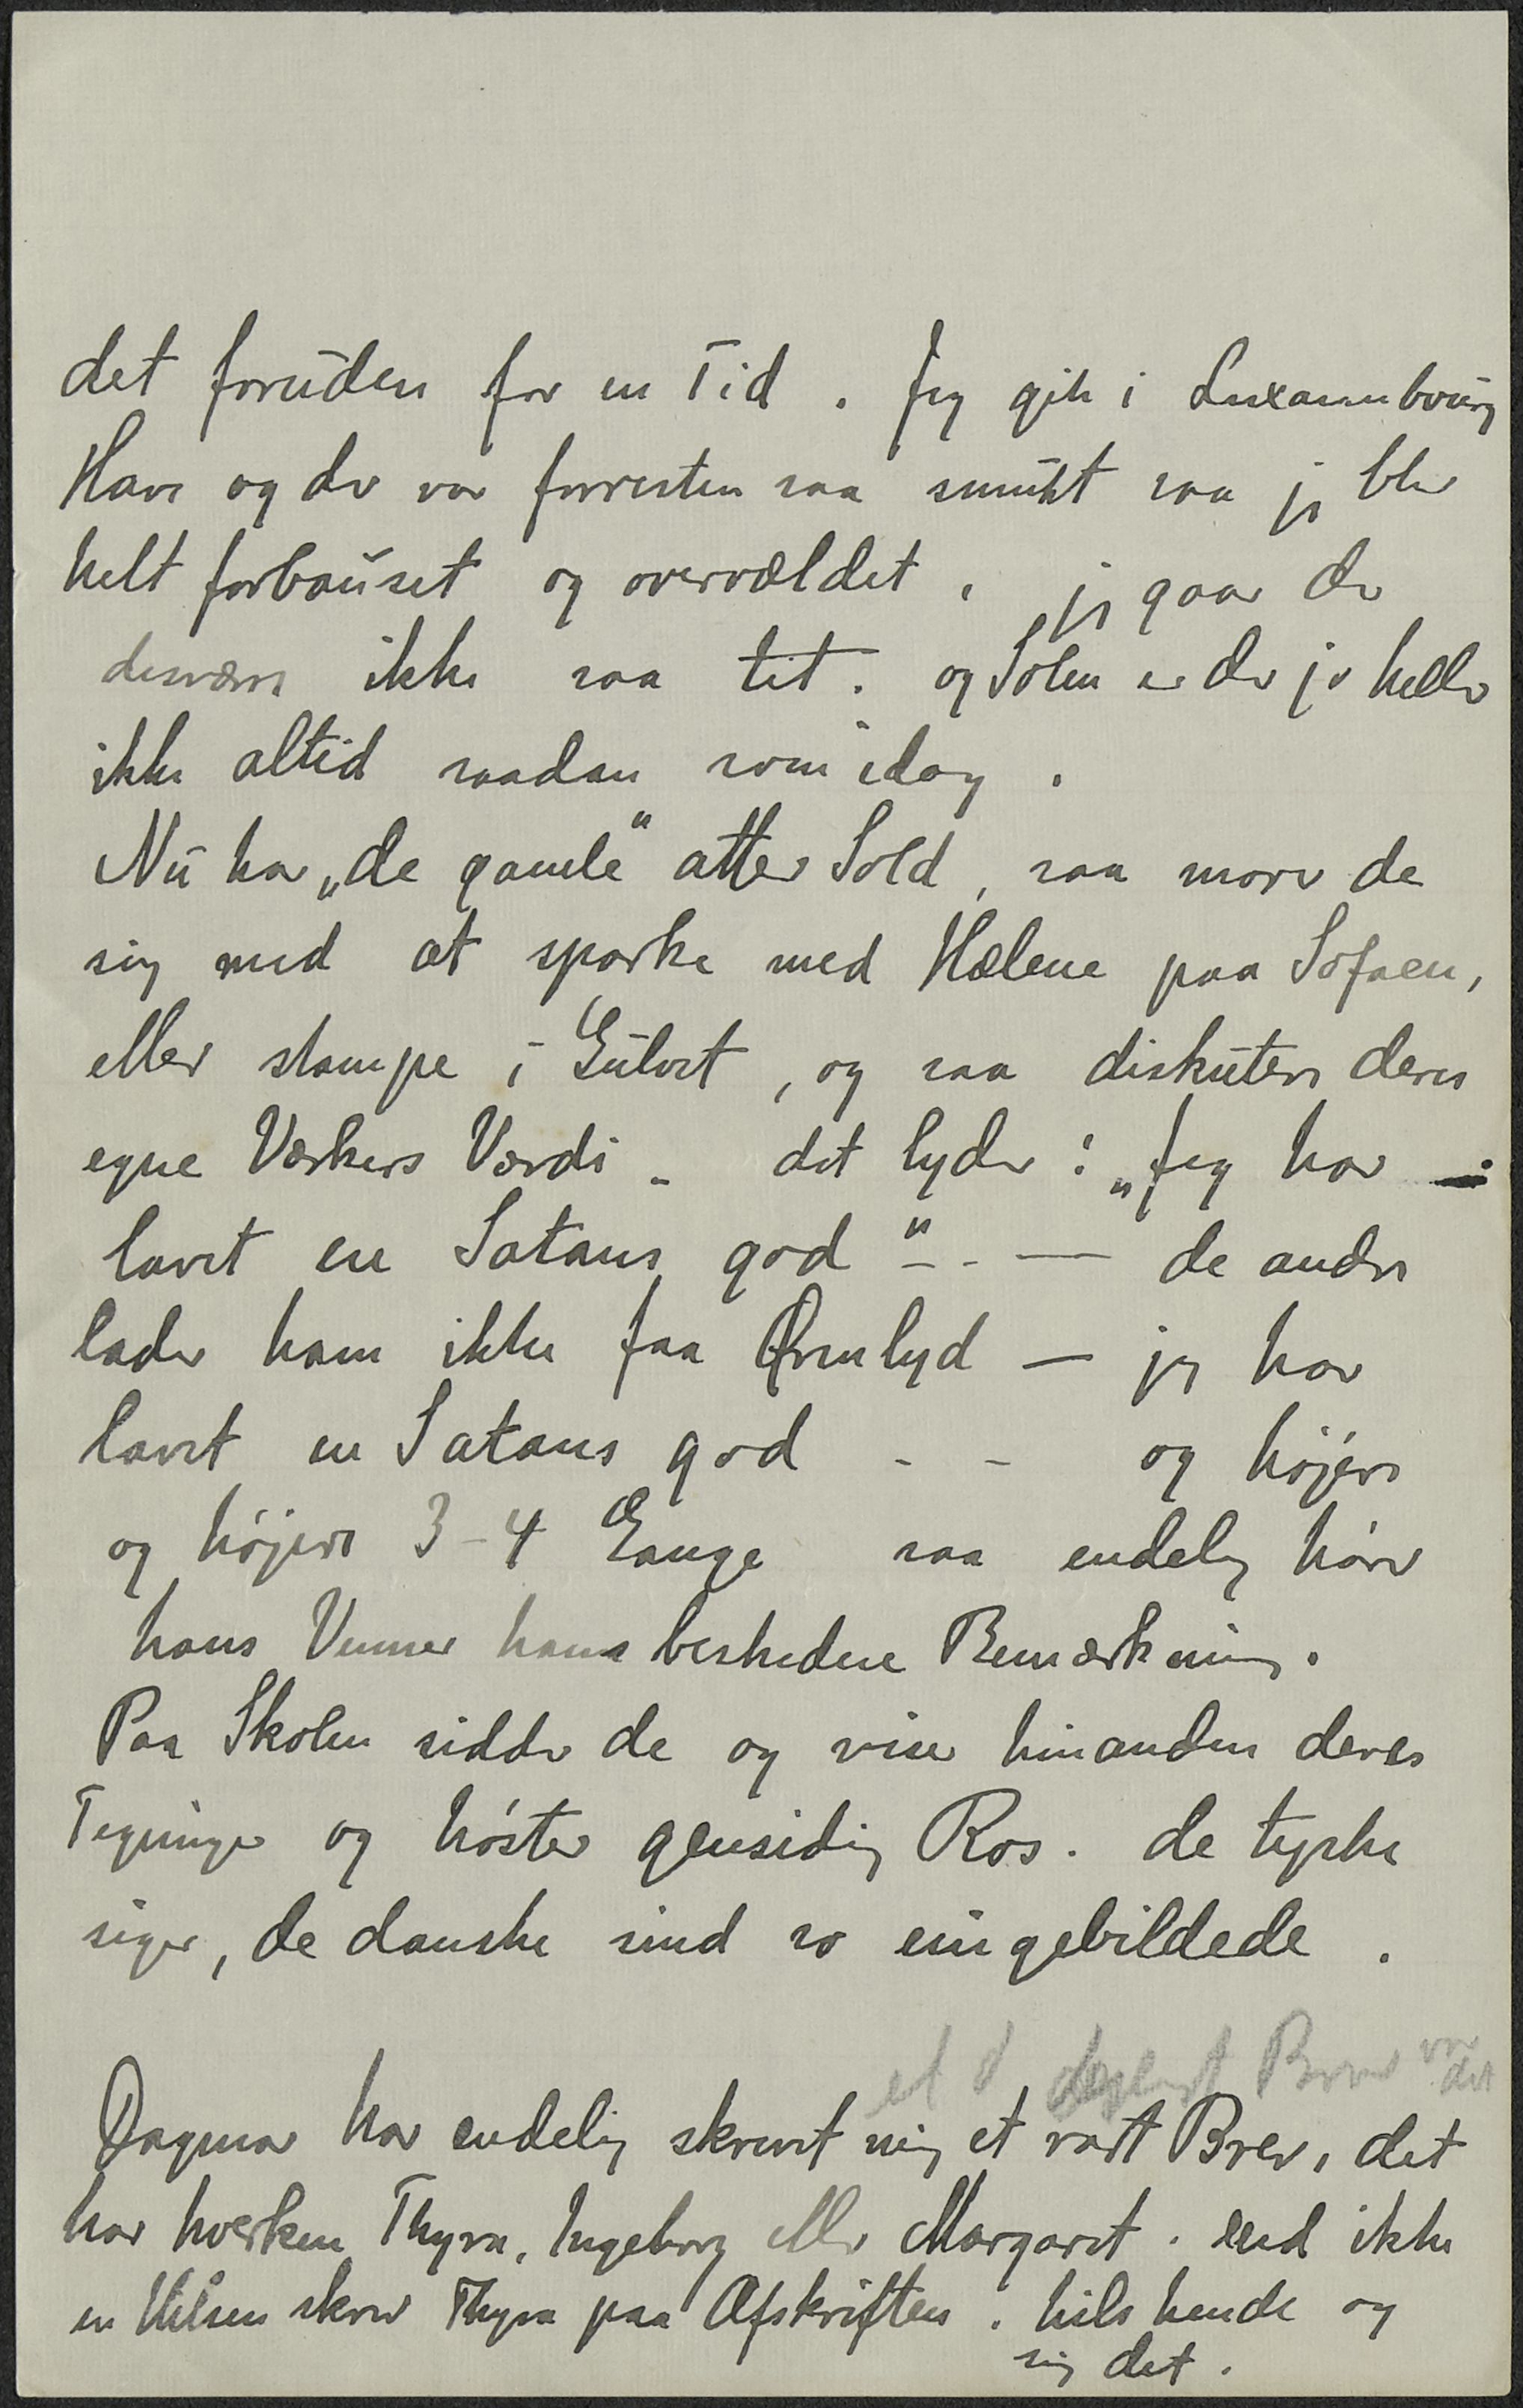 det foruden for en Tid. Jeg gik i Luxembourg
Have og der var forresten saa smukt saa jeg blev
helt forbauset og overvældet, jeg gaar der
desværre ikke saa tit. og Solen er der jo heller
ikke altid saadan som idag.
Nu har „de gamle“ atter Sold, saa morer de
sig med at sparke med Hælene paa Sofaen,
eller stampe i Gulvet, og saa diskutere deres
egne Værkers Værdi - det lyder: „Jeg har
lavet en Satans god“ - - — de andre
lader ham ikke faa Ørenlyd — jeg har
lavet en Satans god - - og højere
og højere 3-4 Gange saa endelig hører
hans Venner hans beskedne Bemærkning.
Paa Skolen sidder de og viser hinanden deres
Tegninger og høster gensidig Ros. de tyske
siger, de danske sind so eingebildede.
et dejligt Brev var det
Dagmar har endelig skrevet mig et rart Brev, det
har hverken Thyra, Ingeborg eller Margaret. end ikke
en Hilsen skrev Thyra paa Afskriften. hils hende og
sig det.